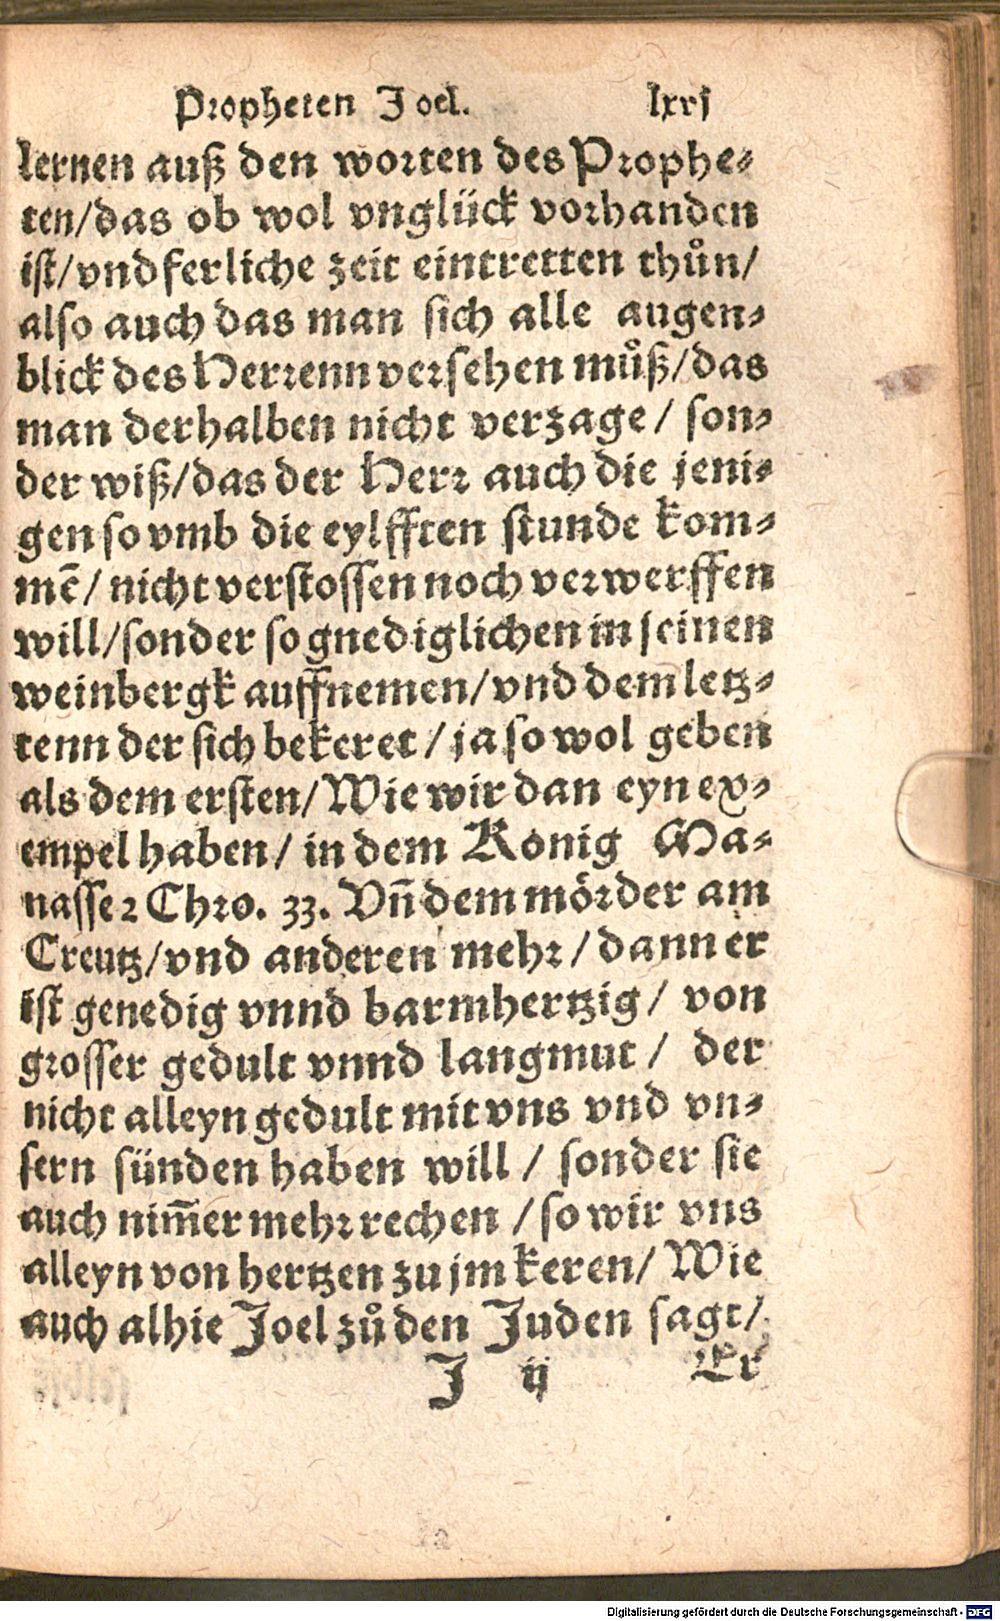 Propheten Joel. lxvj
lernen auß den worten des Prophe⸗
ten/das ob wol vnglück vorhanden
ist/vnd ferliche zeit eintretten thůn/
also auch das man sich alle augen⸗
blick des Herrenn versehen můß/das
man derhalben nicht verzage/ son⸗
der wiß/das der Herr auch die jeni⸗
gen so vmb die eylfften stunde kom⸗
mē/ nicht verstossen noch verwerffen
will/sonder so gnediglichen in seinen
weinbergk auffnemen/vnd dem letz⸗
tenn der sich bekeret/ja so wol geben
als dem ersten/Wie wir dan eyn ex⸗
empel haben/ in dem Konig Ma⸗
nasse 2 Chro. 33. Vn̄ dem mörder am
Creutz/vnd anderen mehr/dann er
ist genedig vnnd barmhertzig/ von
grosser gedult vnnd langmut/ der
nicht alleyn gedult mit vns vnd vn⸗
sern sünden haben will/ sonder sie
auch nim̄er mehr rechen/so wir vns
alleyn von hertzen zu jm keren/ Wie
auch alhie Joel zů den Juden sagt/
J ij Er
Digitalisierung gefördert durch die Deutsche Forschungsgemeinschaft - DFG